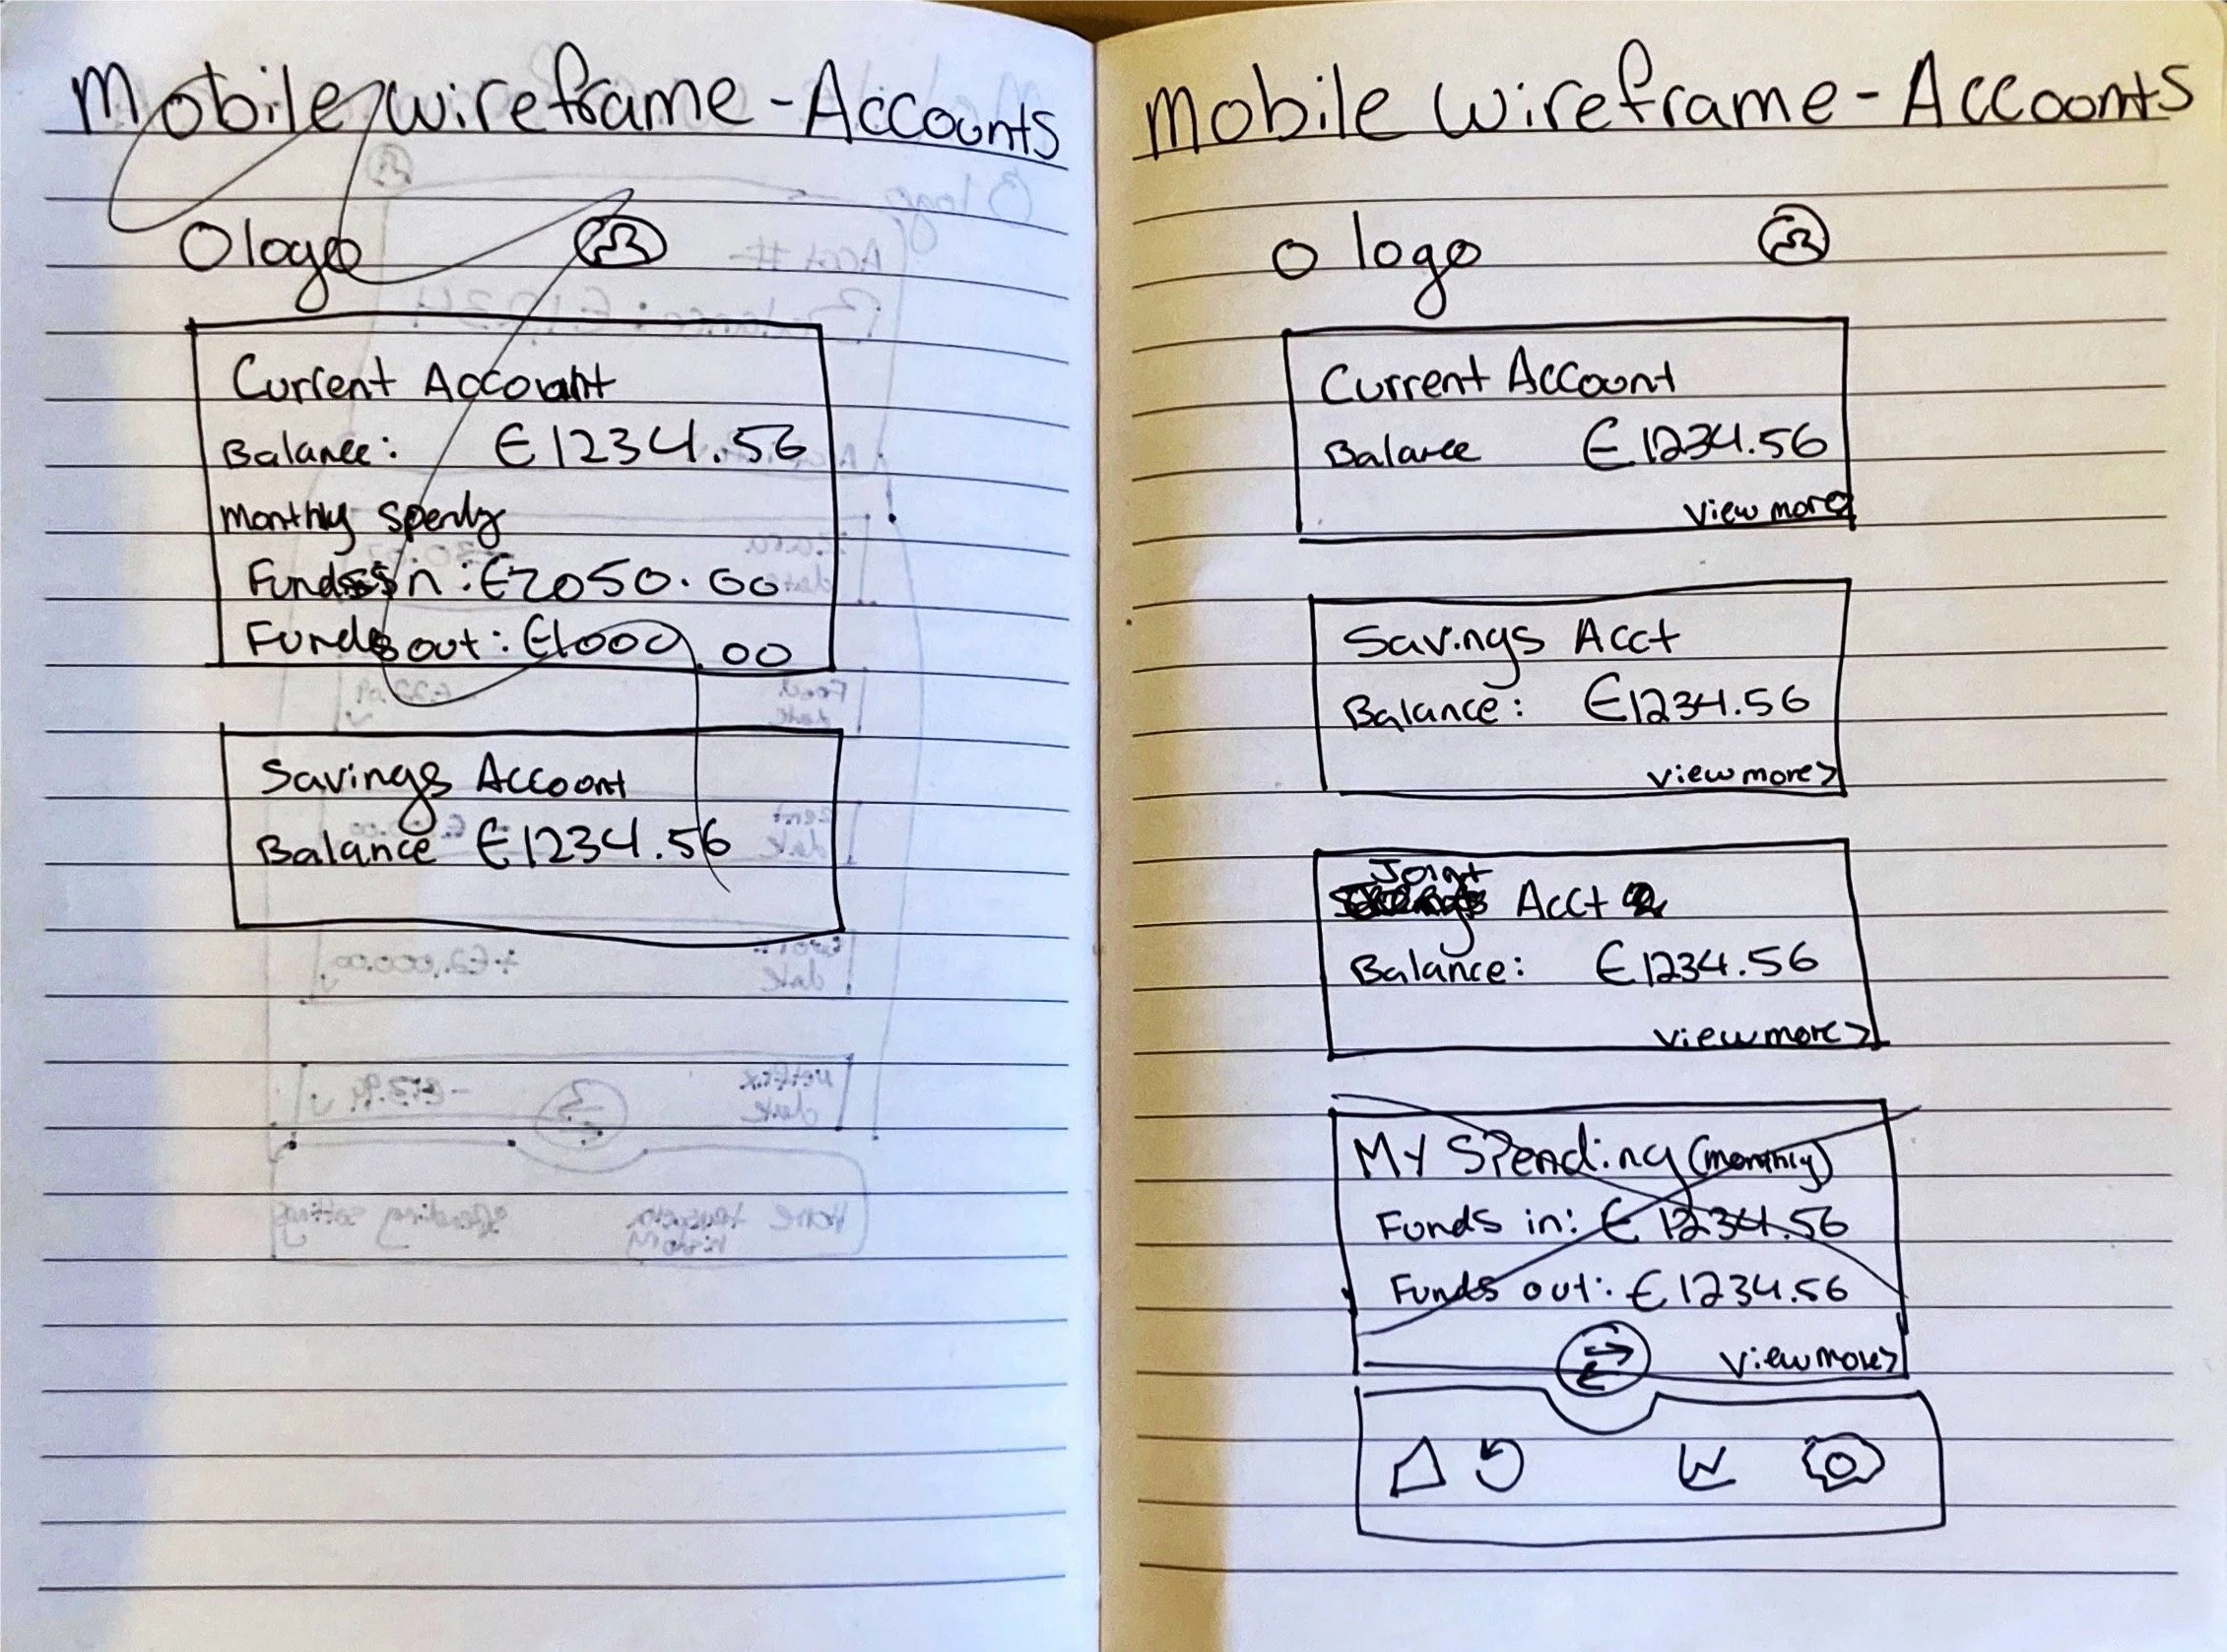 Mobile wireframe - Accounts
O logo
Current Account
Balance: €1234.56
Monthly
Funds in: €2050.00
Funds out: €1000.00
Savings Account
Balance €1234.56
Mobile wireframe - Accounts
O logo
Current Account
Balance €1234.56
View more
Savings Acct
Balance: €1234.56
View more >
Joint
Acct
Balance: €1234.56
View more >
My Spending (monthly)
Funds in: €1234.56
Funds out: €1234.56
View more >